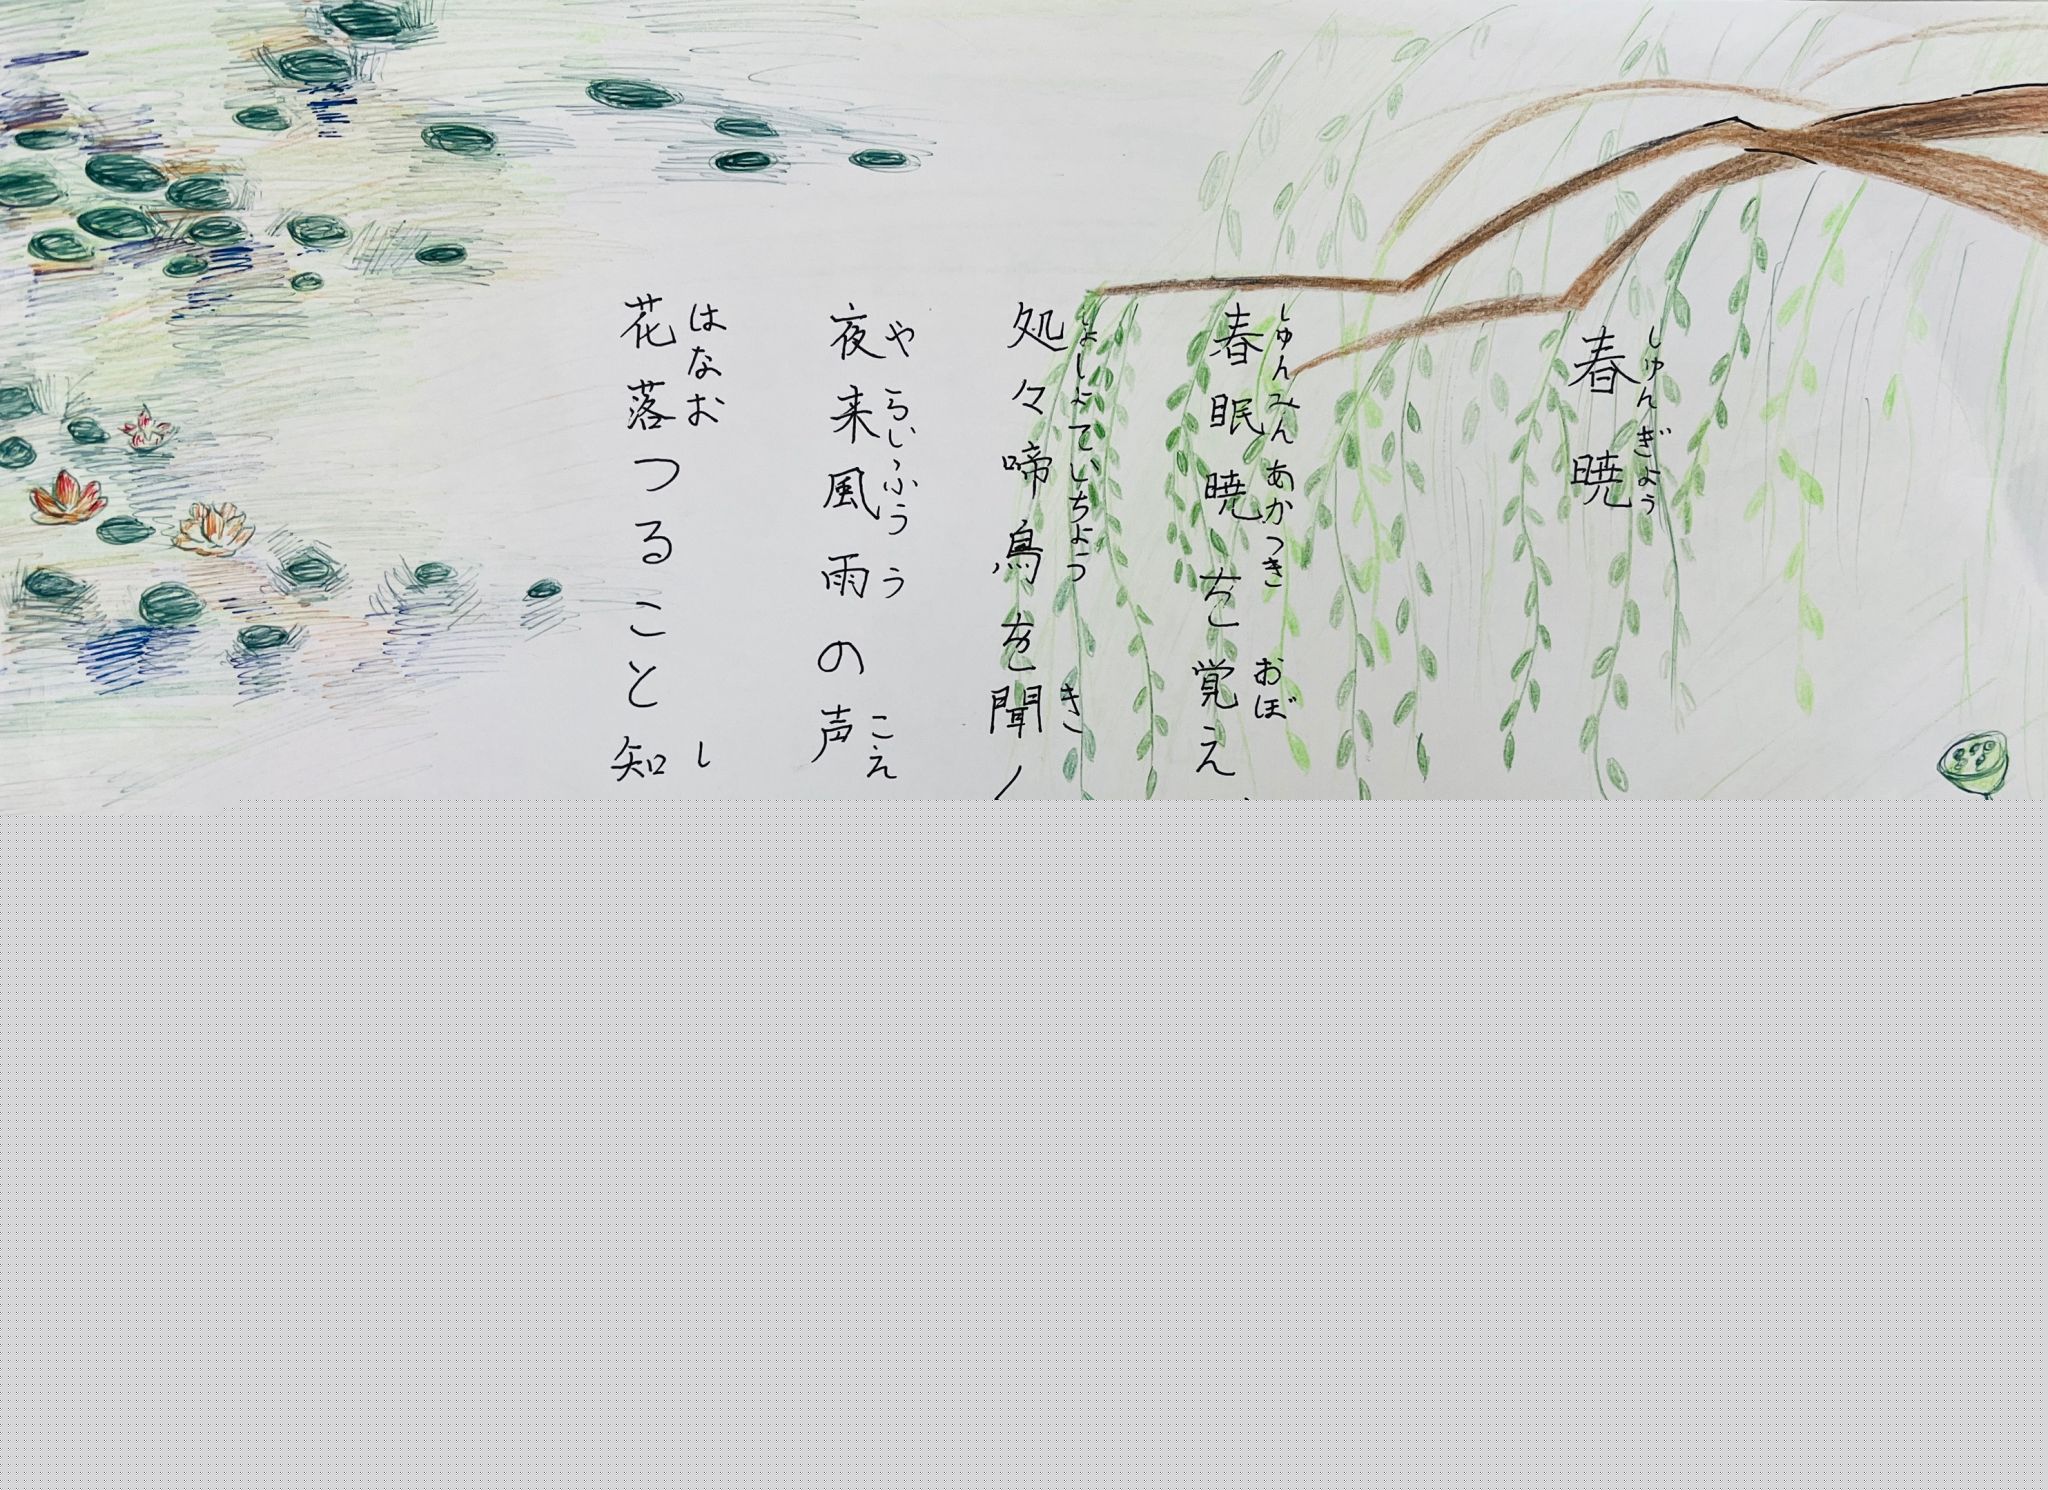 しゅんぎょう
春暁
しゅんみんあかつき おぼ
春眠暁を覚え
しょしょていちょう き
処々啼鳥を聞
やらいふうう こえ
夜来風雨の声
はなお し
花落つること知